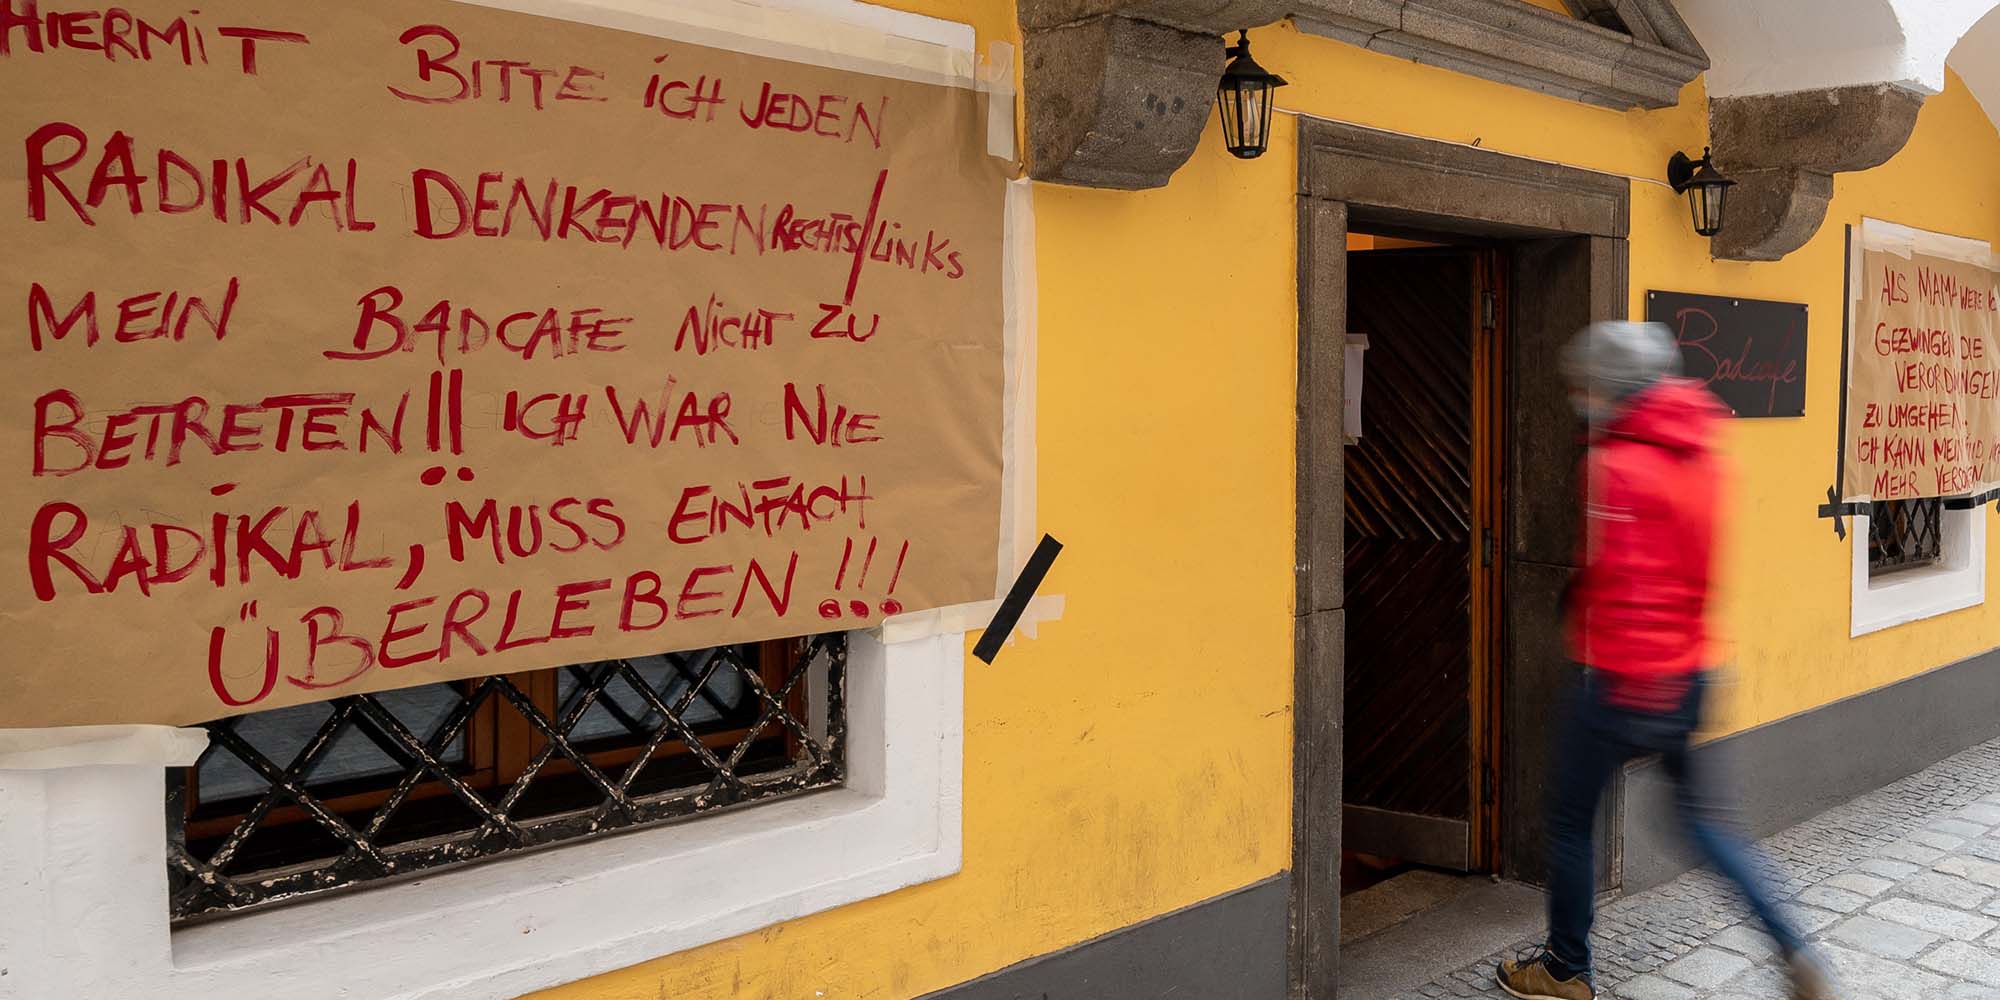 HIERMIT BITTE ICH JEDEN
RADIKAL DENKENDEN RECHTS/LINKS
MEIN BADCAFE NICHT ZU
BETRETEN!! ICH WAR NIE
RADIKAL, MUSS EINFACH
ÜBERLEBEN!!!
Badcafe
ALS MAMA WERE
GEZWINGEN DIE
VERORDNUNGEN
ZU UMGEHEN.
ICH KANN MEIN
MEHR